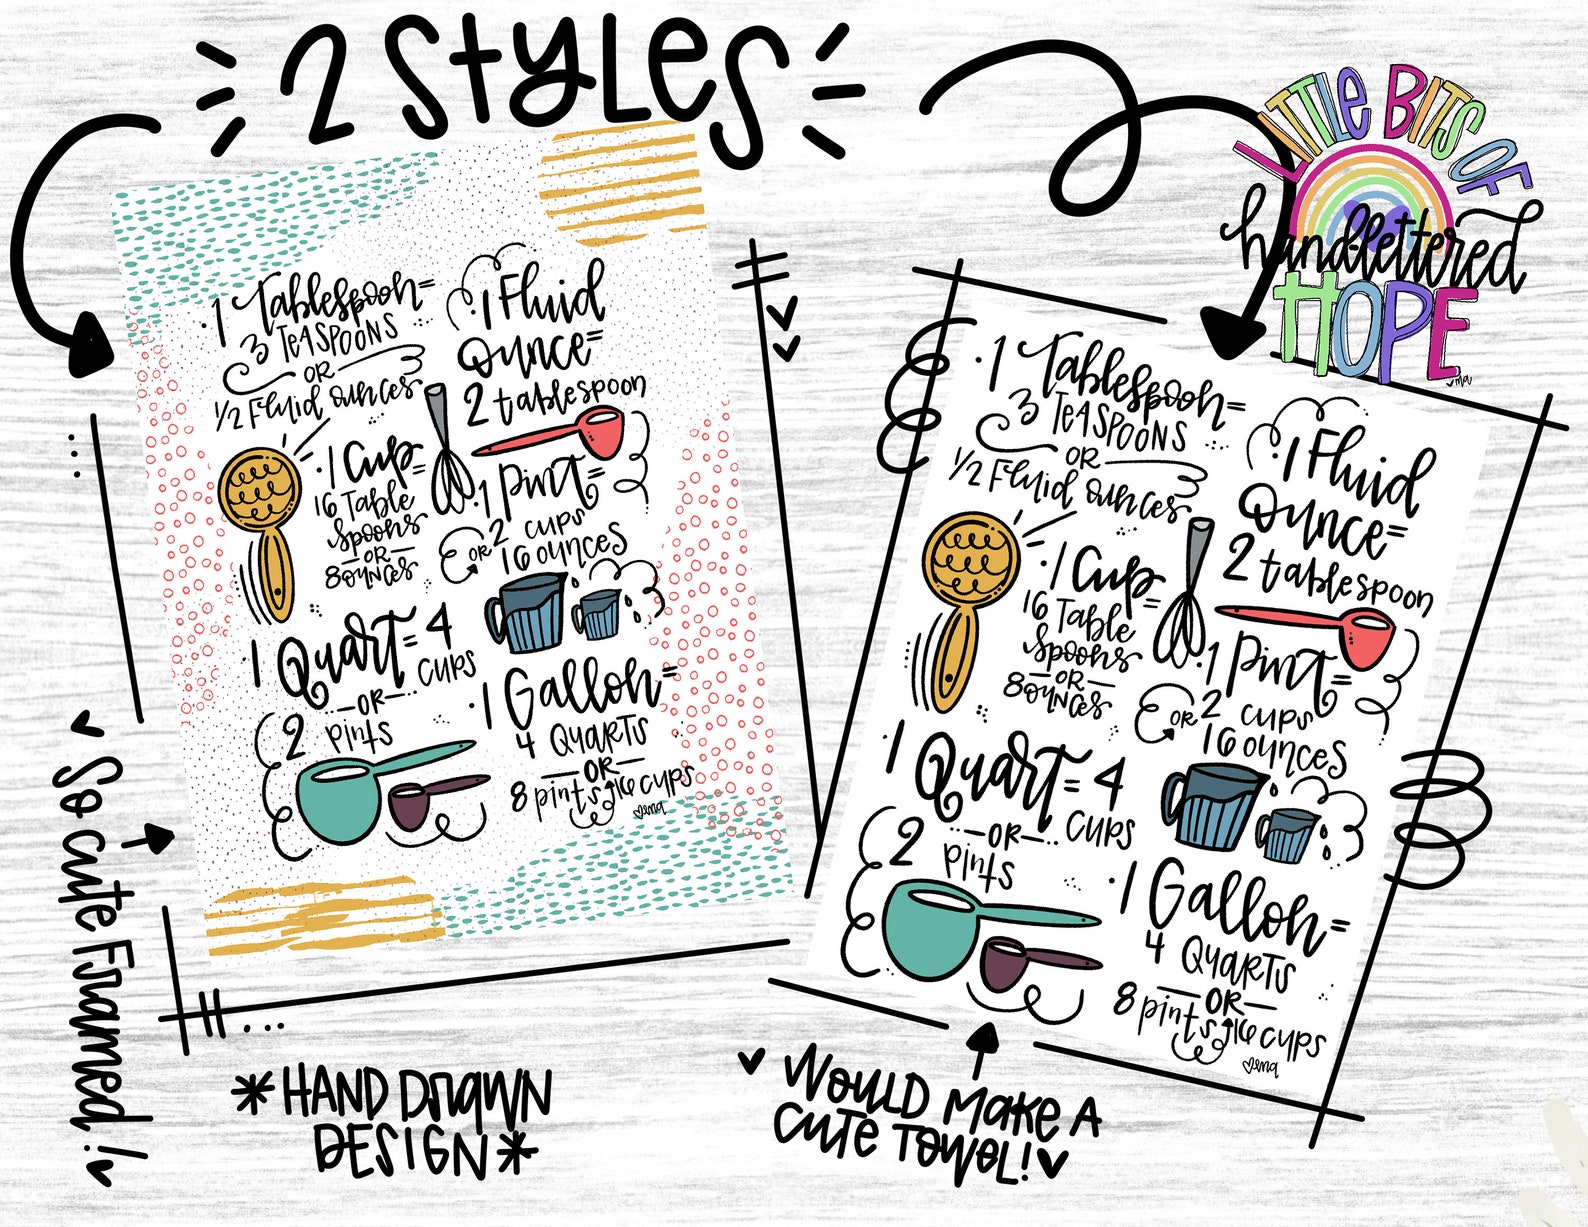 2 Styles
LITTLE BITS OF
hand-lettered
HOPE
ma
·1 Tablespoon=
3 TEASPOONS
OR
1/2 Fluid ounces
·1 Fluid
Ounce=
2 tablespoon
·1 Cup=
16 Table
spoons
-OR-
8 ounces
·1 pint=
OR 2 cups
16 ounces
1 Quart=4
cups
-OR-
2 pints
·1 Gallon=
4 QUARTS
-OR-
8 pints 16 cups
ena
·1 Tablespoon=
3 TEASPOONS
OR
1/2 Fluid ounces
·1 Fluid
Ounce=
2 tablespoon
·1 Cup=
16 Table
spoons
-OR-
8 ounces
·1 pint=
OR 2 cups
16 ounces
1 Quart=4
cups
-OR-
2 pints
·1 Gallon=
4 QUARTS
-OR-
8 pints 16 cups
ena
So cute Framed!
*HAND DRAWN
DESIGN*
WOULD MAKE A
CUTE TOWEL!